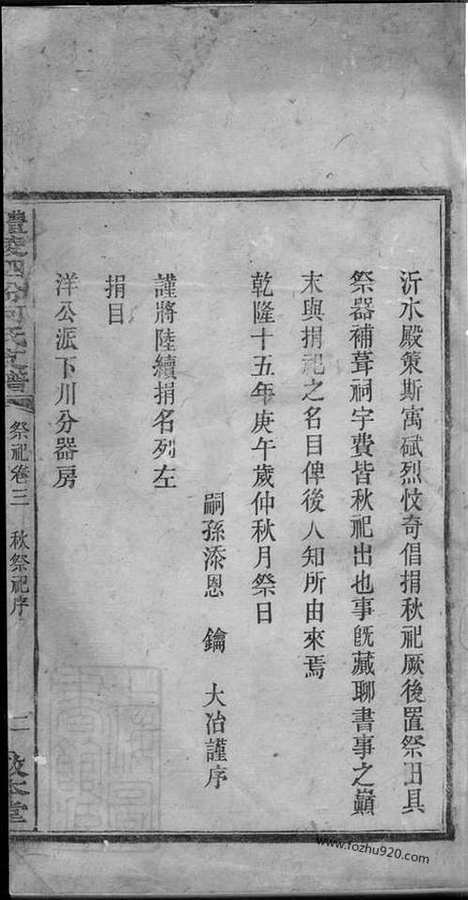 沂水殿策斯寓碔烈忮奇倡捐秋祀厥後置祭田具
祭器補葺祠宇費皆秋祀出也事旣蕆聊書事之巔
末與捐祀之名目俾後人知所由來焉
乾隆十五年庚午歲仲秋月祭日
嗣孫添恩 鑰 大冶謹序
謹將陸續捐名列左
捐目
洋公派下川分器房
醴陵四分何氏支譜
祭祀卷三 秋祭祀序
二 敬本堂
www.fozhu920.com